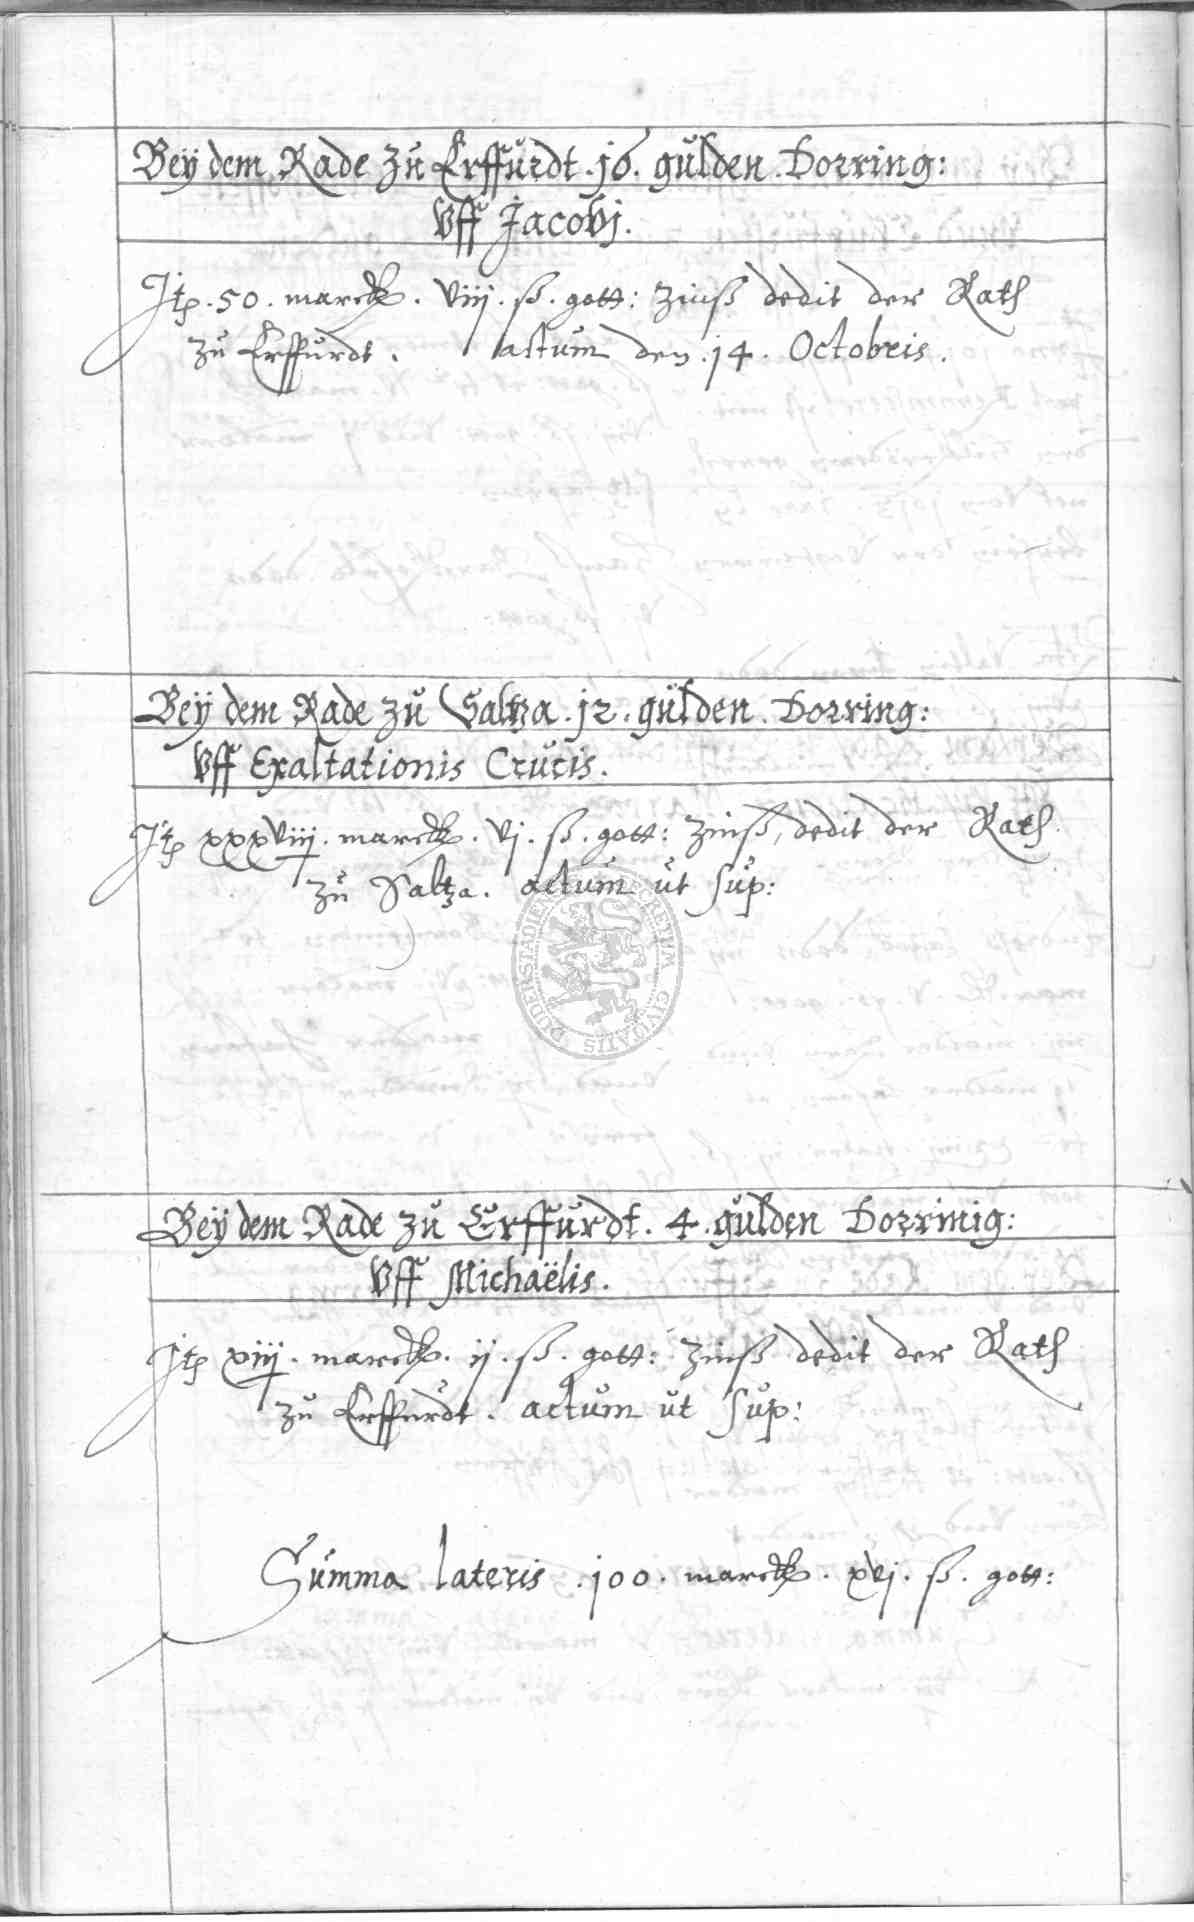 Beÿ dem Rade zu Erffurdt . j6 . gulden . Dorring:
Vff Jacobj.
Itē . 50 . marck . viij . ß . gott: Zinß dedit der Rath
zu Erffurdt . actum den . 14 . Octobris .
Beÿ dem Rade zu Saltza . j2 . gulden . Dorring:
Vff Exaltationis Crucis .
Itē xxxviij . marck . vj . ß . gott: Zinß, dedit der Rath
zu Saltza . actum ut sup:
DUDERSTADIENSIS CIVITATIS
Beÿ dem Rade zu Erffurdt . 4 . gulden Dorring:
Vff Michaëlis .
Itē xiij . marck . ij . ß . gott: Zinß dedit der Rath
zu Erffurdt . actum ut sup:
Summa lateris . j00 . marck . xvj . ß . gott: